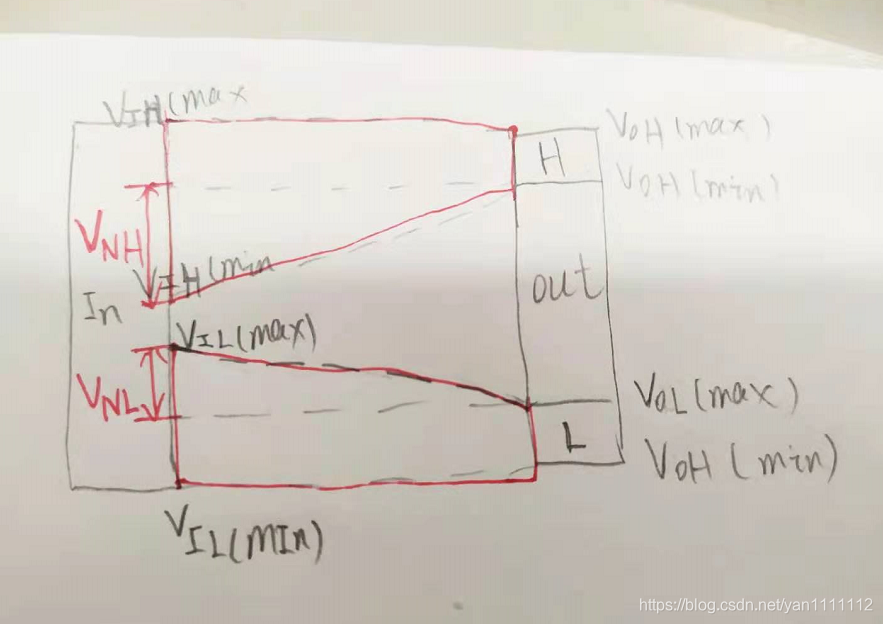 VIH(max
VOH(max)
H
VOH(min)
VNH
VIH(min
In
out
VIL(max)
VNL
VOL(max)
L
VOH(min)
VIL(MIn)
https://blog.csdn.net/yan1111112